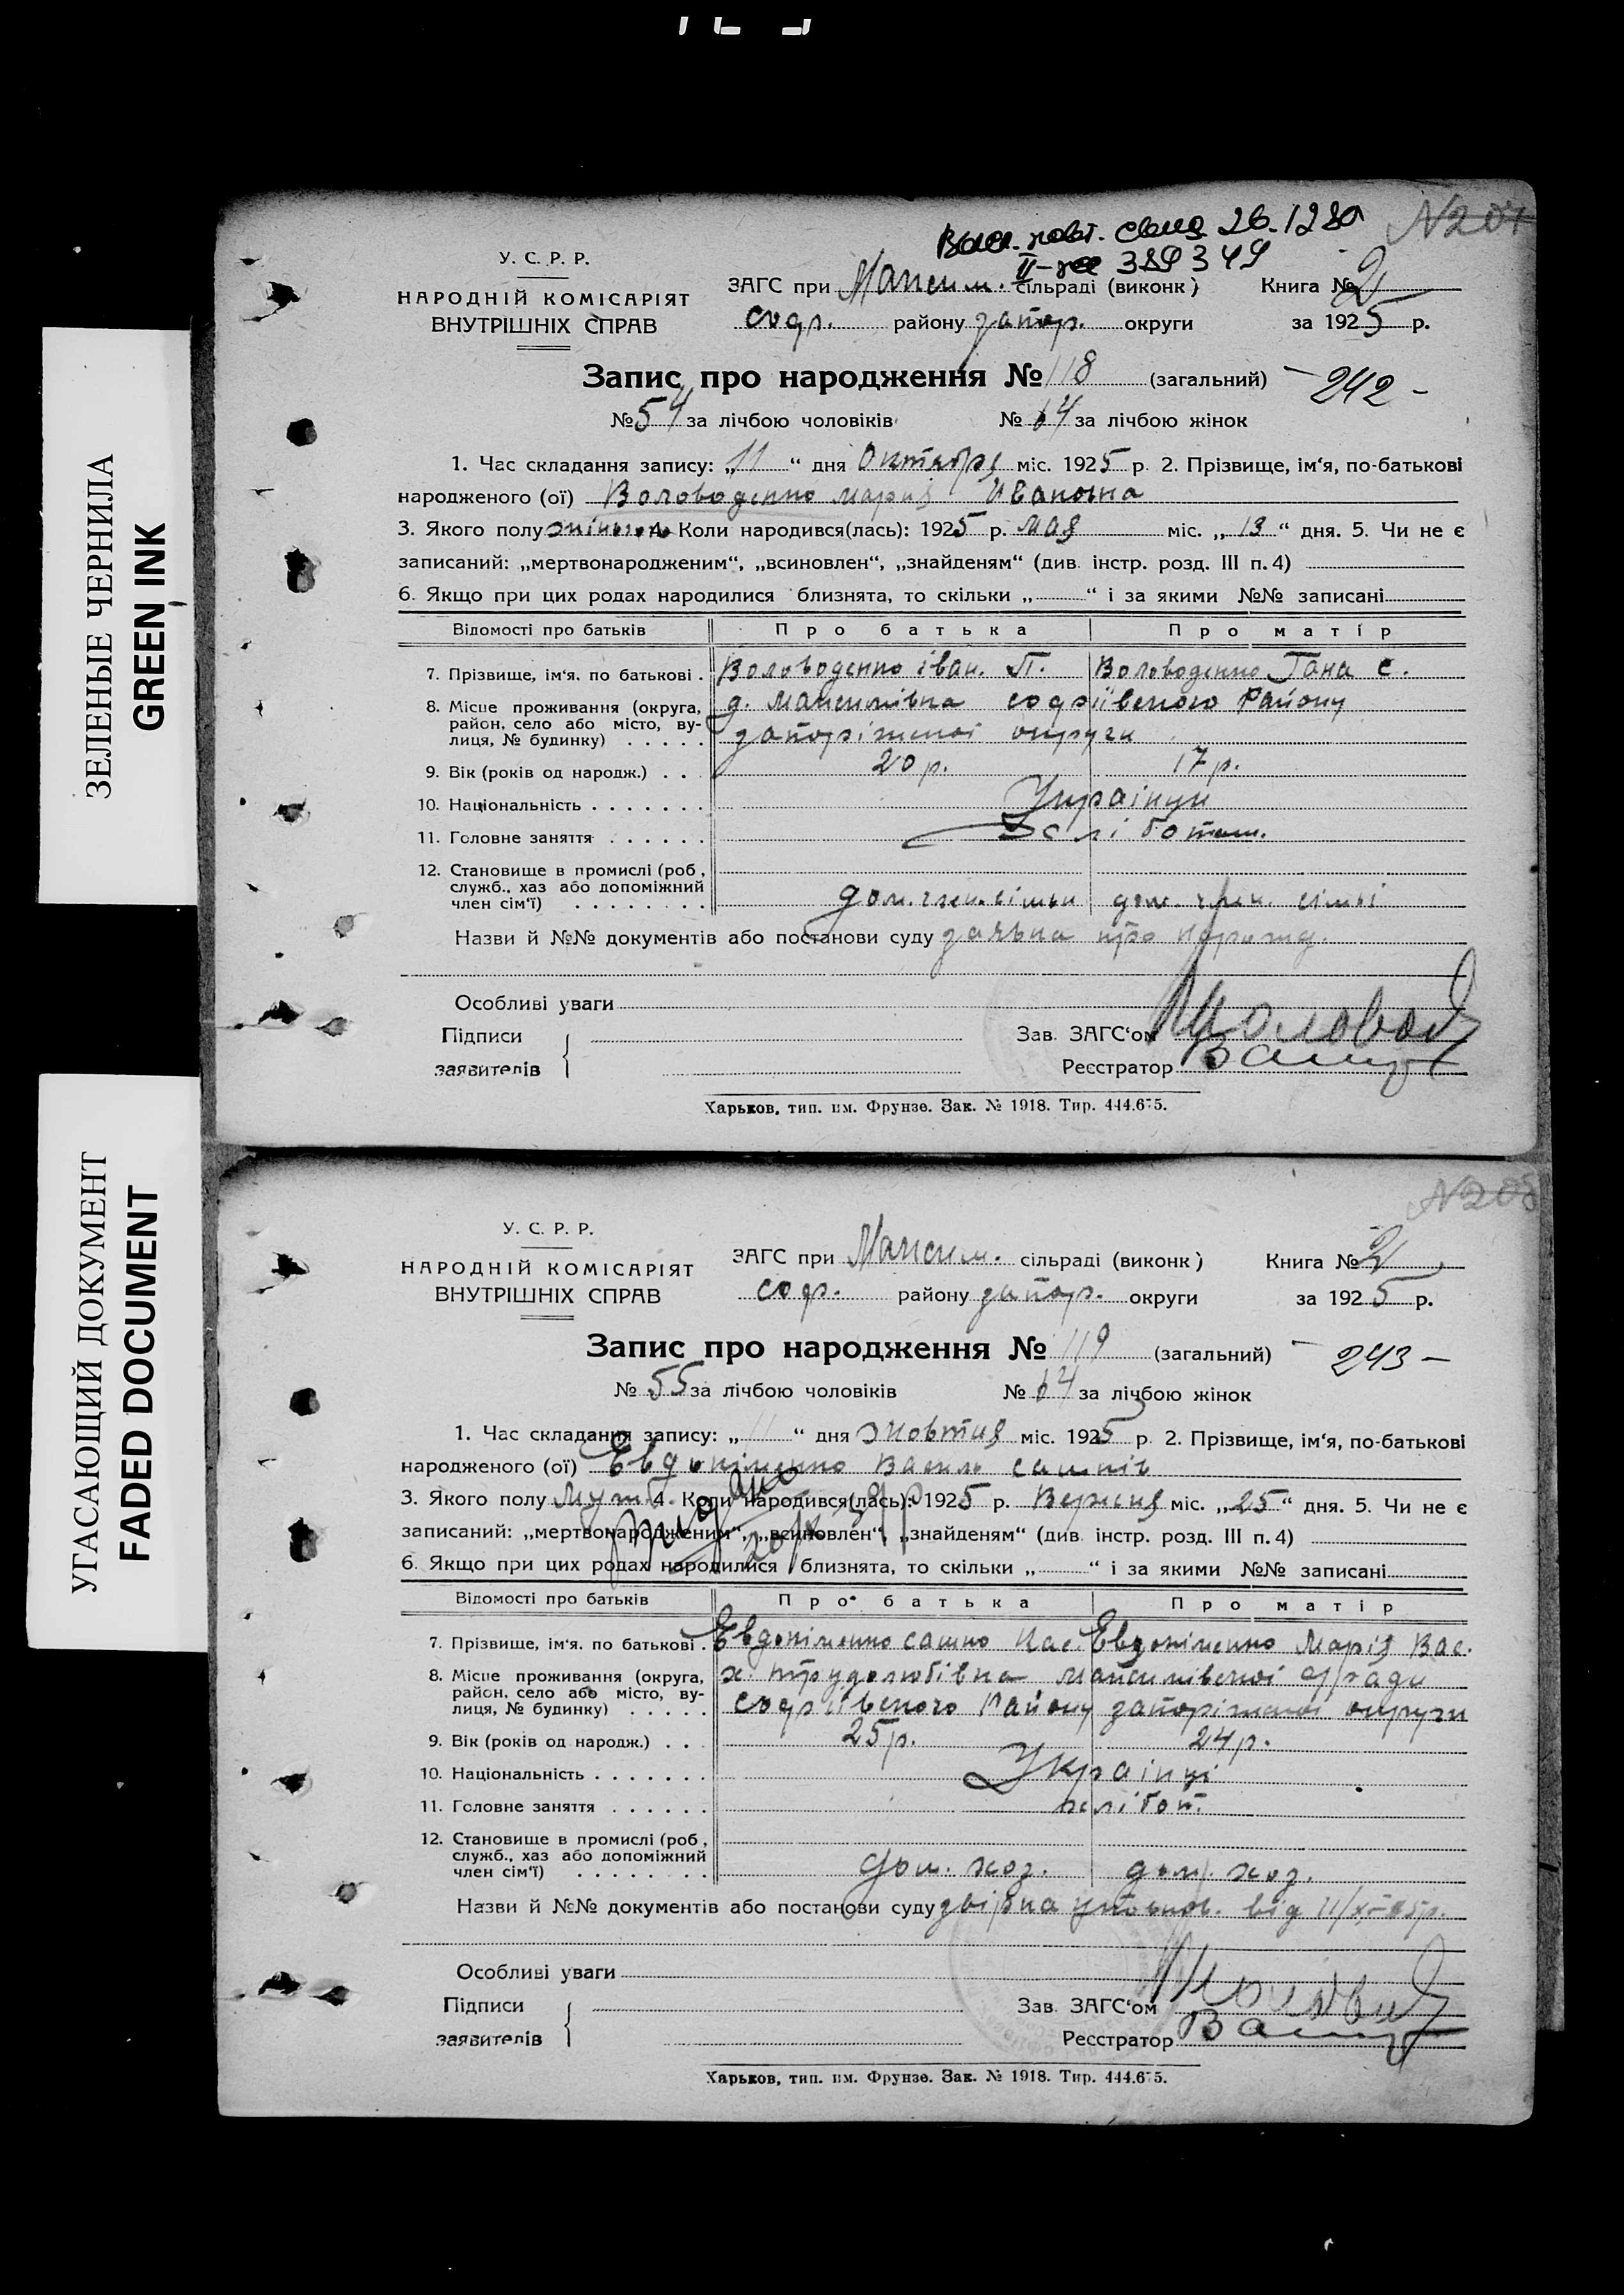 ЗЕЛЕНЫЕ ЧЕРНИЛА
GREEN INK
УГАСАЮЩИЙ ДОКУМЕНТ
FADED DOCUMENT
Выд. повт. свид. 26.12.80
№207
II-ЖС 389349
У. С. Р. Р.
НАРОДНІЙ КОМІСАРІЯТ
ВНУТРІШНІХ СПРАВ
ЗАГС при Максим. сільраді (виконк) Книга № 2
софі. району запор. округи за 1925 р.
Запис про народження № 118 (загальний) - 242 -
№ 54 за лічбою чоловіків № 64 за лічбою жінок
1. Час складання запису: „11“ дня Октября міс. 1925 р. 2. Прізвище, ім‘я, по-батькові
народженого (ої) Воловоденко Мария Ивановна
3. Якого полу жіночо 4. Коли народився(лась): 1925 р. мая міс. „13“ дня. 5. Чи не є
записаний: „мертвонародженим“, „всиновлен“, „знайденям“ (див. інстр. розд. III п. 4)
6. Якщо при цих родах народилися близнята, то скільки „ “ і за якими №№ записані
Відомості про батьків Про батька Про матір
7. Прізвище, ім‘я. по батькові . Воловоденко іван. П. Воловоденко Гана С.
8. Місце проживання (округа, район, село або місто, вулиця, № будинку) д. Максимівка софіївского Району
запоріжської округи
9. Вік (років од народж.) . . 20 р. 17 р.
10. Національність Українци
11. Головне заняття хлібопаш.
12. Становище в промислі (роб., служб., хаз або допоміжний член сім‘ї) дом. член. сімьи дом. член. сімьі
Назви й №№ документів або постанови суду заявка про народжд.
Особливі уваги
Підписи
заявителів
Зав. ЗАГС‘ом
Реєстратор
Харьков, тип. им. Фрунзе. Зак. № 1918. Тир. 444.675.
№208
У. С. Р. Р.
НАРОДНІЙ КОМІСАРІЯТ
ВНУТРІШНІХ СПРАВ
ЗАГС при Максим. сільраді (виконк) Книга № 2
софі. району запор. округи за 1925 р.
Запис про народження № 119 (загальний) - 243 -
№ 55 за лічбою чоловіків № 64 за лічбою жінок
1. Час складання запису: „11“ дня жовтня міс. 1925 р. 2. Прізвище, ім‘я, по-батькові
народженого (ої) Евдокіменко Василь сашків
3. Якого полу Мужб. 4. Коли народився(лась): 1925 р. Вересня міс. „25“ дня. 5. Чи не є
записаний: „мертвонародженим“, „всиновлен“, „знайденям“ (див. інстр. розд. III п. 4)
6. Якщо при цих родах народилися близнята, то скільки „ “ і за якими №№ записані
Відомості про батьків Про батька Про матір
7. Прізвище, ім‘я. по батькові . Евдокіменко сашко Евдокіменко Марія Вас.
8. Місце проживання (округа, район, село або місто, вулиця, № будинку) х. трудолюбівка Максимівської с/ради
софіївского Району запоріжської округи
9. Вік (років од народж.) . . 25 р. 24 р.
10. Національність Українці
11. Головне заняття хлібоп.
12. Становище в промислі (роб., служб., хаз або допоміжний член сім‘ї) дом. хоз. дом. хоз.
Назви й №№ документів або постанови суду від 11/X-25 р.
Особливі уваги
Підписи
заявителів
Зав. ЗАГС‘ом
Реєстратор
Харьков, тип. им. Фрунзе. Зак. № 1918. Тир. 444.675.